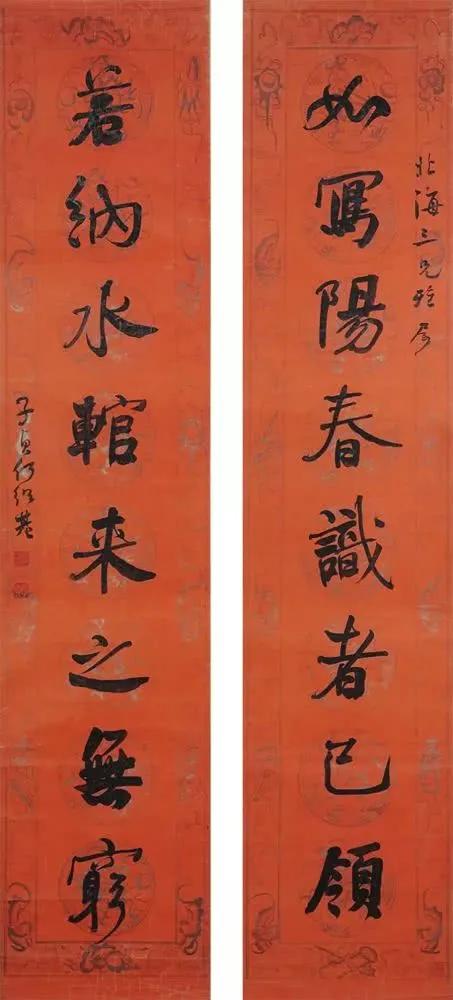 北海三兄雅屬
如寫陽春識者已領
若納水輨來之無窮
子貞何紹基